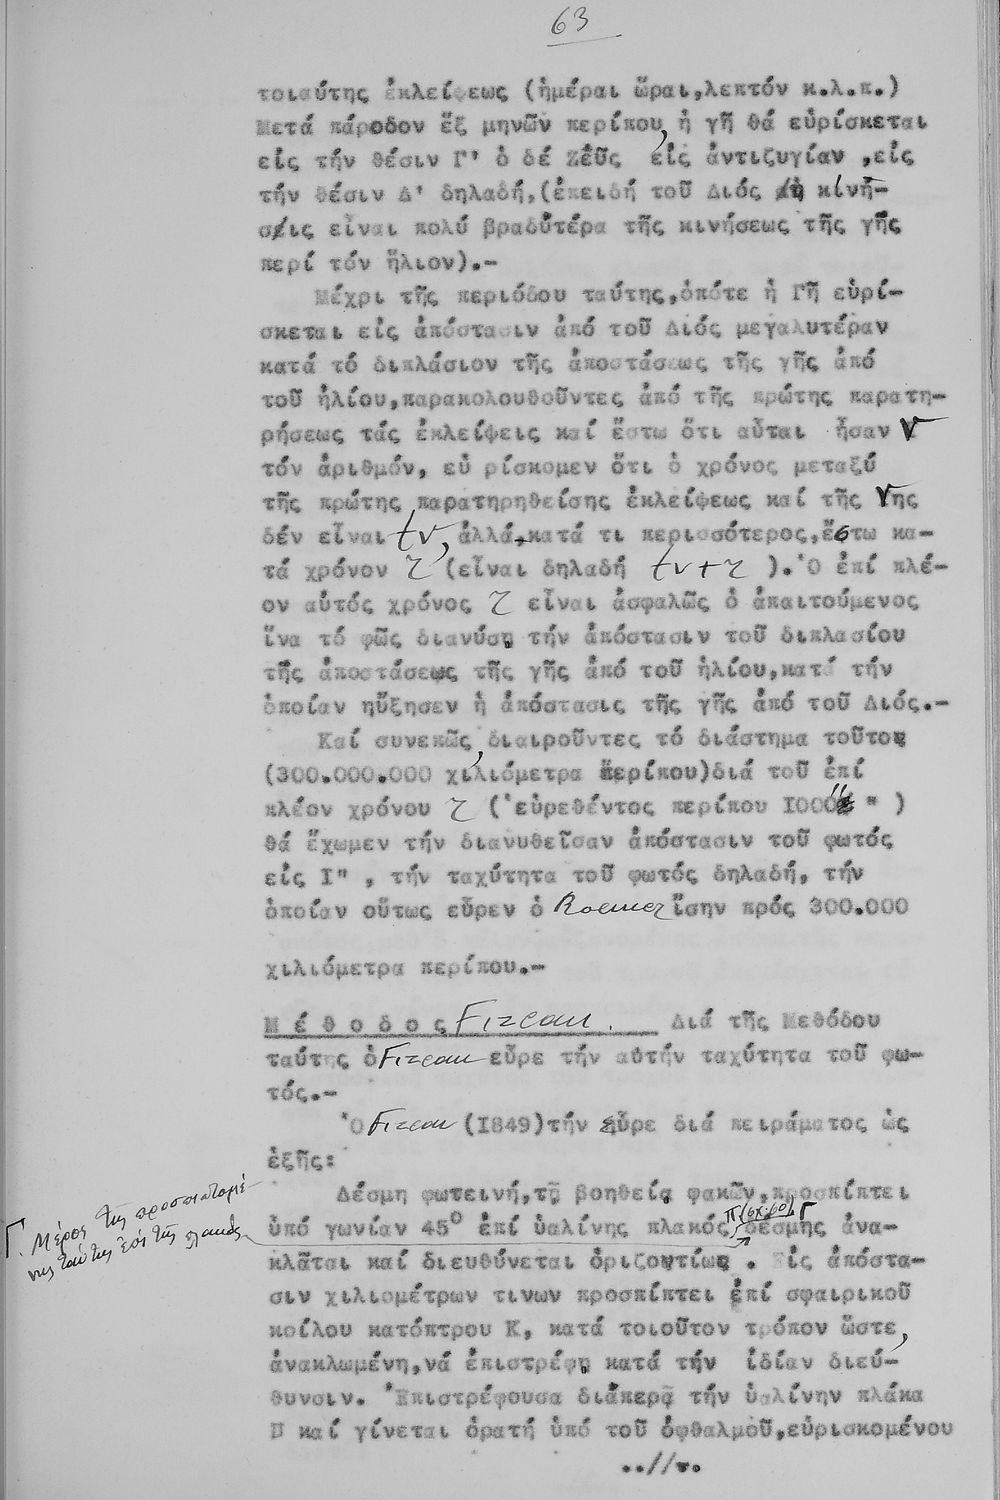 63
τοιαύτης ἐκλείψεως (ἡμέραι ὧραι,λεπτόν κ.λ.π.)
Μετά πάροδον ἕξ μηνῶν περίπου, ἡ γῆ θά εὑρίσκεται
εἰς τήν θέσιν Γ' ὁ δέ Ζεῦς εἰς ἀντιζυγίαν ,εἰς
τήν θέσιν Δ' δηλαδή,(ἐπειδή τοῦ Διός ἡ κίνη-
σις εἶναι πολύ βραδυτέρα τῆς κινήσεως τῆς γῆς
περί τόν ἥλιον).-
Μέχρι τῆς περιόδου ταύτης,ὁπότε ἡ Γῆ εὑρί-
σκεται εἰς ἀπόστασιν ἀπό τοῦ Διός μεγαλυτέραν
κατά τό διπλάσιον τῆς ἀποστάσεως τῆς γῆς ἀπό
τοῦ ἡλίου,παρακολουθοῦντες ἀπό τῆς πρώτης παρατη-
ρήσεως τάς ἐκλείψεις καί ἔστω ὅτι αὗται ἦσαν ν
τόν ἀριθμόν, εὑ ρίσκομεν ὅτι ὁ χρόνος μεταξύ
τῆς πρώτης παρατηρηθείσης ἐκλείψεως καί τῆς νης
δέν εἶναι tν, ἀλλά κατά τι περισσότερος,ἔστω κα-
τά χρόνον τ (εἶναι δηλαδή tν+τ ).Ὁ ἐπί πλέ-
ον αὐτός χρόνος τ εἶναι ἀσφαλῶς ὁ ἀπαιτούμενος
ἵνα τό φῶς διανύσῃ τήν ἀπόστασιν τοῦ διπλασίου
τῆς ἀποστάσεως τῆς γῆς ἀπό τοῦ ἡλίου,κατά τήν
ὁποίαν ηὔξησεν ἡ ἀπόστασις τῆς γῆς ἀπό τοῦ Διός.-
Καί συνεπῶς, διαιροῦντες τό διάστημα τοῦτο
(300.000.000 χιλιόμετρα περίπου)διά τοῦ ἐπί
πλέον χρόνου τ (εὑρεθέντος περίπου I000" )
θά ἔχωμεν τήν διανυθεῖσαν ἀπόστασιν τοῦ φωτός
εἰς I" , τήν ταχύτητα τοῦ φωτός δηλαδή, τήν
ὁποίαν οὕτως εὗρεν ὁ Roemer ἴσην πρός 300.000
χιλιόμετρα περίπου.-
Μ έ θ ο δ ο ς Fizeau. Διά τῆς Μεθόδου
ταύτης ὁ Fizeau εὗρε τήν αὐτήν ταχύτητα τοῦ φω-
τός.-
Ὁ Fizeau (I849)τήν εὗρε διά πειράματος ὡς
ἑξῆς:
Δέσμη φωτεινή,τῇ βοηθείᾳ φακῶν,προσπίπτει
ὑπό γωνίαν 45° ἐπί ὑαλίνης πλακός Π (σχ.60). Γ δέσμης ἀνα-
Γ. Μέρος τῆς προσπιπτομέ-
νης ταύτης ἐπί τῆς πλακός
κλᾶται καί διευθύνεται ὁριζοντίως . Εἰς ἀπόστα-
σιν χιλιομέτρων τινων προσπίπτει ἐπί σφαιρικοῦ
κοίλου κατόπτρου Κ, κατά τοιοῦτον τρόπον ὥστε,
ἀνακλωμένη,νά ἐπιστρέφῃ κατά τήν ἰδίαν διεύ-
θυνσιν. Ἐπιστρέφουσα διάπερᾷ τήν ὑαλίνην πλάκα
Π καί γίνεται ὁρατή ὑπό τοῦ ὀφθαλμοῦ,εὑρισκομένου
..//..